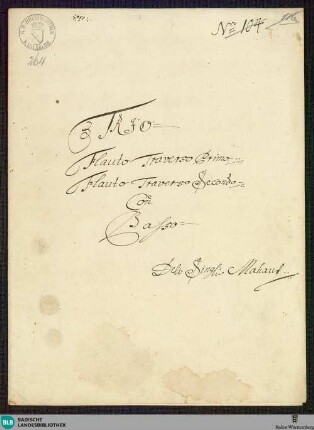 Nro 104
264
TRIO
Flauto Traverso Primo
Flauto Traverso Secondo
Con
Basso
Mahaut
BLB
BADISCHE
LANDESBIBLIOTHEK
Baden-Württemberg